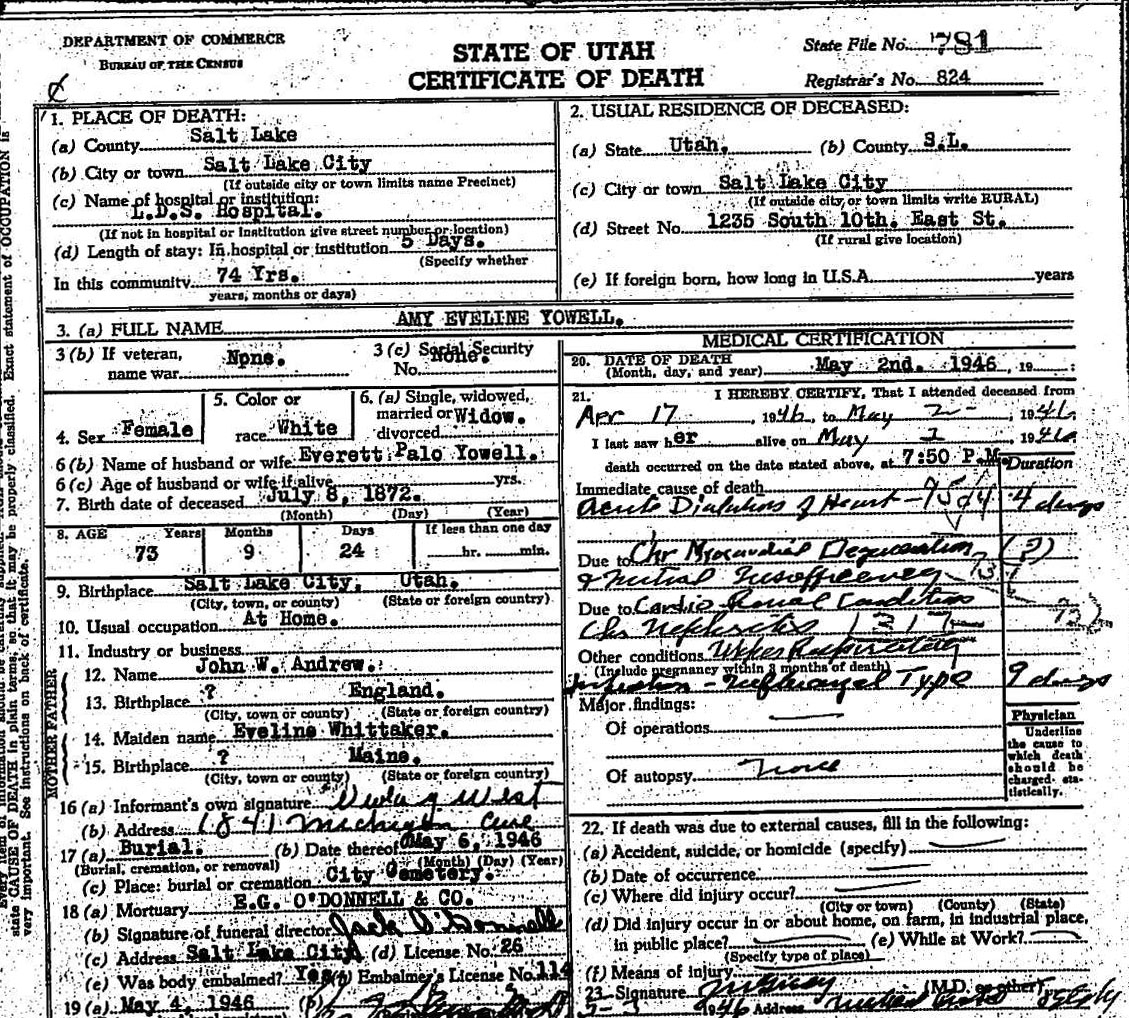 DEPARTMENT OF COMMERCE
BUREAU OF THE CENSUS
STATE OF UTAH
CERTIFICATE OF DEATH
State File No. 781
Registrar's No. 824
1. PLACE OF DEATH:
(a) County Salt Lake
(b) City or town Salt Lake City
(If outside city or town limits name Precinct)
(c) Name of hospital or institution:
L.D.S. Hospital.
(If not in hospital or institution give street number or location)
(d) Length of stay: In hospital or institution 5 Days.
(Specify whether
In this community 74 Yrs.
years, months or days)
2. USUAL RESIDENCE OF DECEASED:
(a) State Utah. (b) County S.L.
(c) City or town Salt Lake City
(If outside city or town limits write RURAL)
(d) Street No. 1235 South 10th. East St.
(If rural give location)
(e) If foreign born, how long in U.S.A. years
3. (a) FULL NAME AMY EVELINE YOWELL.
3 (b) If veteran, None.
name war
3 (c) Social Security
No. None.
4. Sex Female
5. Color or
race White
6. (a) Single, widowed,
married or Widow.
divorced
6 (b) Name of husband or wife Everett Palo Yowell.
6 (c) Age of husband or wife if alive yrs.
7. Birth date of deceased July 8, 1872.
(Month) (Day) (Year)
8. AGE Years Months Days If less than one day
73 9 24 hr. min.
9. Birthplace Salt Lake City, Utah.
(City, town, or county) (State or foreign country)
10. Usual occupation At Home.
11. Industry or business
FATHER
12. Name John W. Andrew.
13. Birthplace ? England.
(City, town or county) (State or foreign country)
MOTHER
14. Maiden name Eveline Whittaker.
15. Birthplace ? Maine.
(City, town or county) (State or foreign country)
16 (a) Informant's own signature West
(b) Address 1841 Michigan Ave
17 (a) Burial. (b) Date thereof May 6, 1946
(Burial, cremation, or removal) (Month) (Day) (Year)
(c) Place: burial or cremation City Cemetery.
18 (a) Mortuary E.G. O'DONNELL & CO.
(b) Signature of funeral director Jack O'Donnell
(c) Address Salt Lake City (d) License No. 26
(e) Was body embalmed? Yes Embalmer's License No. 114
19 (a) May 4, 1946 (b)
MEDICAL CERTIFICATION
20. DATE OF DEATH
(Month, day, and year) May 2nd. 1946, 19
21. I HEREBY CERTIFY, That I attended deceased from
Apr 17, 1946, to May 2, 1946
I last saw her alive on May 1, 1946
death occurred on the date stated above, at 7:50 P.M. Duration
Immediate cause of death
Acute Dilatation of Heart 4 days
Due to Chr Myocardial Degeneration (?)
& Mitral Insufficiency
Due to Cardio Renal Condition
Chr Nephritis
Other conditions Upper Respiratory
(Include pregnancy within 3 months of death)
Infection - Influenzal Type 9 days
Major findings:
Of operations
Of autopsy None
Physician
Underline
the cause to
which death
should be
charged sta-
tistically.
22. If death was due to external causes, fill in the following:
(a) Accident, suicide, or homicide (specify)
(b) Date of occurrence
(c) Where did injury occur?
(City or town) (County) (State)
(d) Did injury occur in or about home, on farm, in industrial place,
in public place? (e) While at Work?
(Specify type of place)
(f) Means of injury
23. Signature (M.D. or other)
1946 Address
OCCUPATION is
Exact statement of
it may be properly classified.
state CAUSE OF DEATH in plain terms, so that
very important. See instructions on back of certificate.